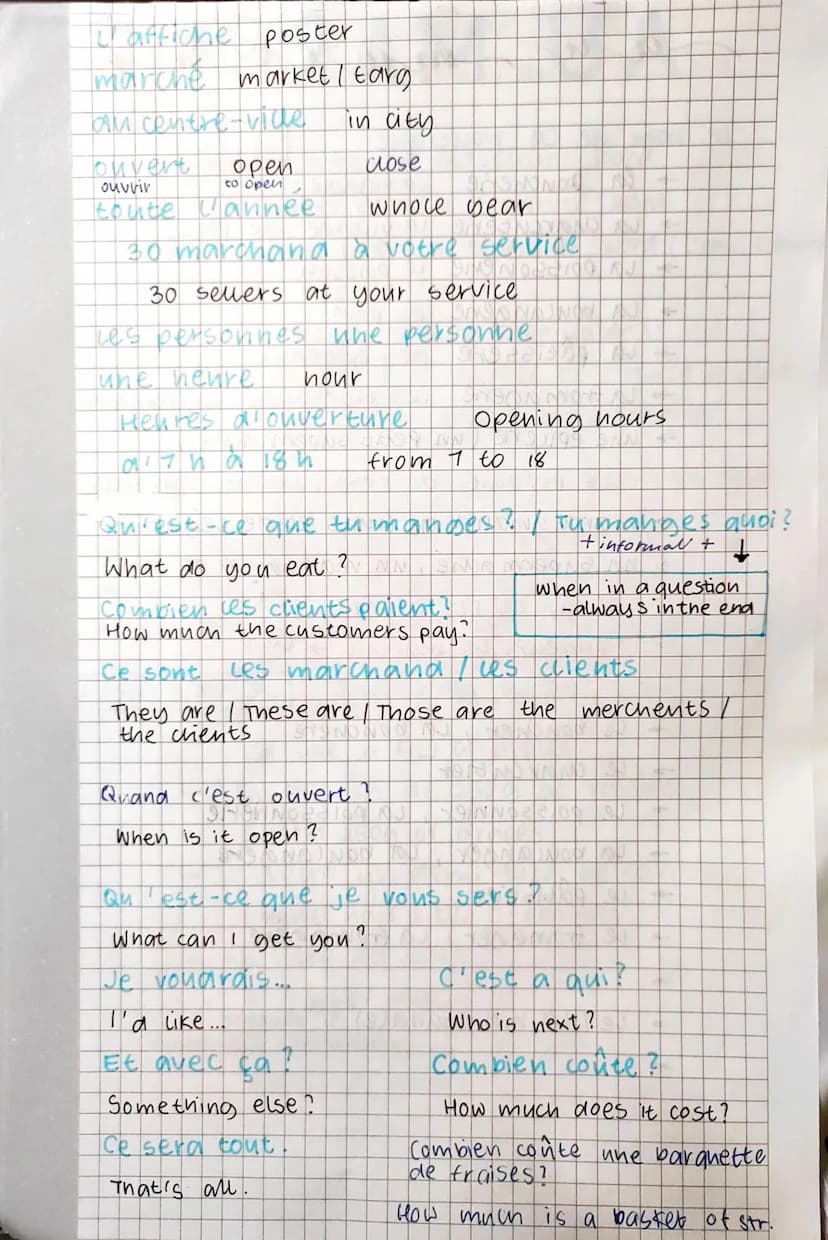 L'affiche poster
marché market / targ
au centre-ville in city
ouvert open close
ouvrir to open
toute l'année whole year
30 marchand à votre service
30 sellers at your service
Les personnes une personne
une heure hour
Heures d'ouverture Opening hours
d'7h à 18h from 7 to 18
Qu'est-ce que tu manges? / Tu manges quoi?
+ informal +
What do you eat?
when in a question
- always in the end
Combien les clients paient?
How much the customers pay?
Ce sont les marchand / les clients
They are / These are / Those are the merchents /
the clients
Quand c'est ouvert?
When is it open?
Qu'est-ce que je vous sers?
What can I get you?
Je vouarais... C'est a qui?
I'd like... Who is next?
Et avec ça? Combien coûte?
Something else? How much does it cost?
Ce sera tout. Combien coûte une barquette
de fraises?
That's all.
How much is a basket of str.